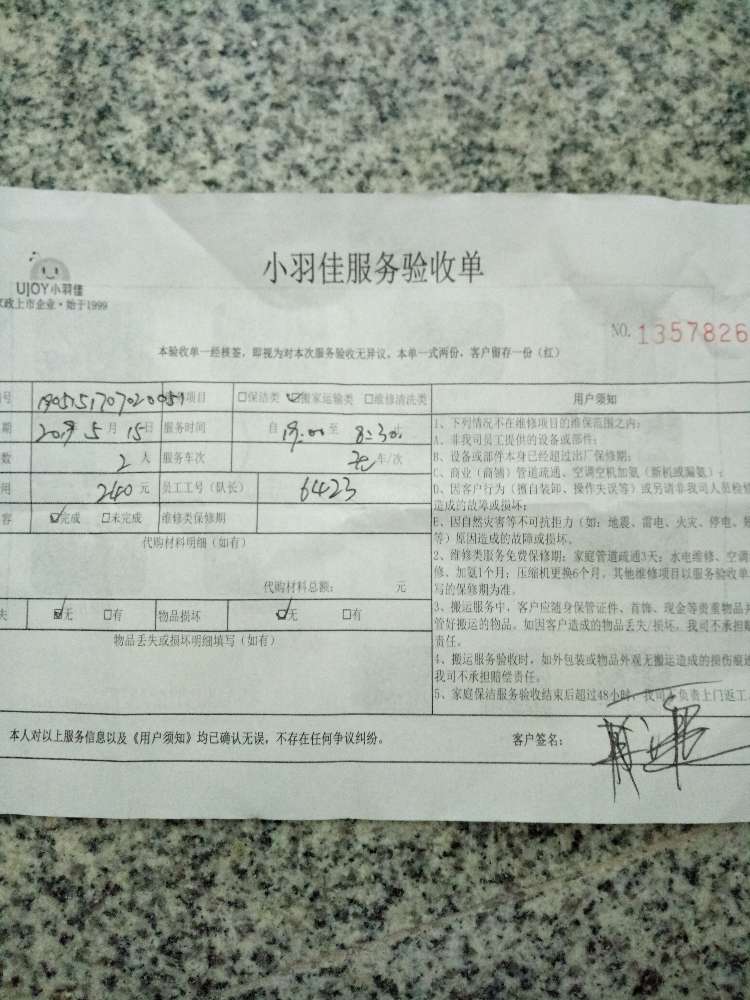 UJOY小羽佳
家政上市企业·始于1999
小羽佳服务验收单
NO. 1357826
本验收单一经核签，即视为对本次服务验收无异议。本单一式两份，客户留存一份（红）
号 项目 □保洁类 ☑搬家运输类 □维修清洗类 用户须知
期 2019年5月15日 服务时间 自19:00至8:30
数 2人 服务车次 车/次
用 240元 员工工号（队长） 6423
容 ☑完成 □未完成 维修类保修期
代购材料明细（如有）
代购材料总额： 元
失 ☑无 □有 物品损坏 ☑无 □有
物品丢失或损坏明细填写（如有）
1、下列情况不在维修项目的维保范围之内：
A、非我司员工提供的设备或部件；
B、设备或部件本身已经超过出厂保修期；
C、商业（商铺）管道疏通、空调空机加氨（新机或漏氨）；
D、因客户行为（擅自装卸、操作失误等）或另请非我司人员检修
造成的故障或损坏；
E、因自然灾害等不可抗拒力（如：地震、雷电、火灾、停电、
等）原因造成的故障或损坏。
2、维修类服务免费保修期：家庭管道疏通3天；水电维修、空调
修、加氨1个月；压缩机更换6个月，其他维修项目以服务验收单
写的保修期为准。
3、搬运服务中，客户应随身保管证件、首饰、现金等贵重物品并
管好搬运的物品。如因客户造成的物品丢失/损坏，我司不承担
责任。
4、搬运服务验收时，如外包装或物品外观无搬运造成的损伤痕迹
我司不承担赔偿责任。
5、家庭保洁服务验收结束后超过48小时，我司不负责上门返工
本人对以上服务信息以及《用户须知》均已确认无误，不存在任何争议纠纷。 客户签名：